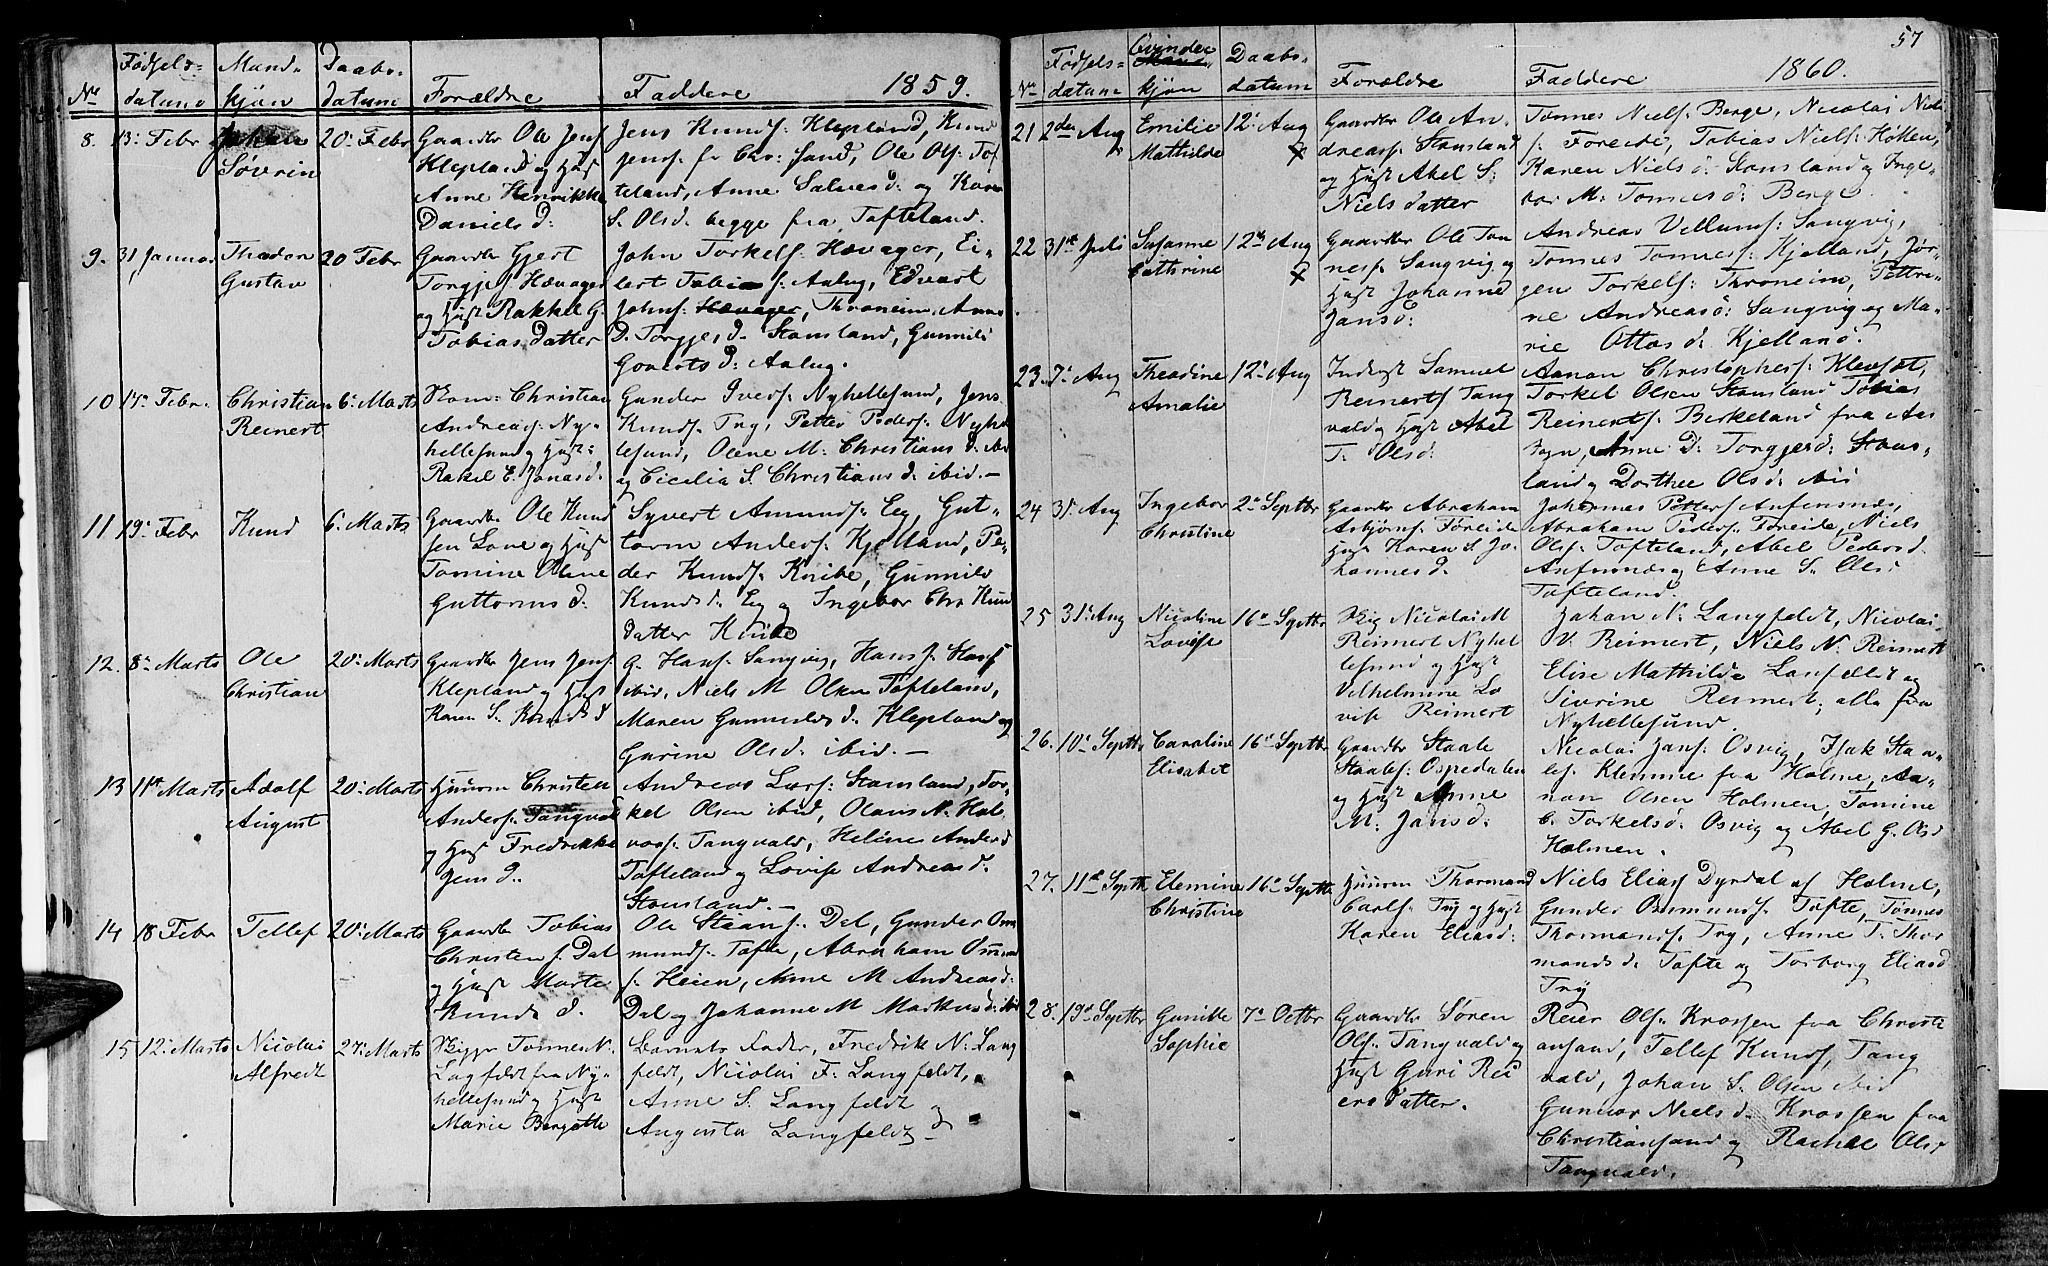 1859.
No
Fødsels-
datum
Mand-
kjøn
Daabs-
datum
Forældre
Faddere
8. 13. Febr
Johan
Søvrin
20. Febr
Gaardbr Ole Jens
Klepland og Hust
Anne Henrikke
Daniels d:
Jens Knuds: Klepland, Knud
Jens f. Chr: sand, Ole Ols: Tof
teland, Anne Salves d: og Karen
S. Olsd. begge fra Tofteland.
9. 31 Januar
Theodor
Gustav
20 Febr
Gaardbr Gjert
Torgjes: Hævager
og Hust Rakkel G.
Tobias datter
John Torkels: Hævager, Ei-
lert Tobias s: Aalug, Edvart
Johns: Hævager, Throneim, Anne
D. Torgje, d. Stausland, Gunnild
Goverts d: Aalug.
10 14. Febr.
Christian
Reinert
6. Marts
Christian
Andreas: Ny-
hellesund og Hust:
Rakel E. Jonasd.
Gunder Ivers: Nyhellesund, Jens
Knuds. Try, Petter Peders: Nyhel
lesund, Olene M. Christians d: ibid
og Cicilia S. Christians d. ibid. —
11 19. Febr
Knud
6. Marts
Gaardbr Ole Knud
sen Lone og Hust
Tomine Olene
Guttorms d.
Syvert Amunds: Eeg, Gut-
torm Anders: Kjelland, Pe-
der Knuds: Knibe, Gunnild
Knuds d: Eeg og Ingebor Chr. Knud
datter Knibe
12. 8. Marts
Ole
Christian
20. Marts
Gaardbr Jens Jens:
Klepland og Hust
Karen S. Knuds d
G. Hans: Sangvig, Hans J. Hans
ibid, Niels M Olsen Tofteland,
Maren Gunvalds d. Klepland og
Gurine Olsd. ibid. —
13 11te Marts
Adolf
August
20. Marts
Huusm Christen
Anders: Tangvald
og Hust Fredrikke
Jens d.
Andreas Lars: Stausland, Tor-
kel Olsen ibid, Olaus N. Hal
vors: Tangvald, Helene Anders d
Tofteland og Lovise Andreas d:
Stausland. —
14 18 Febr
Tellef
20. Marts
Gaardbr Tobias
Christen s. Dal
og Hust Marte
Knuds d.
Ole Staans: Dal, Gunder Om
munds: Tofte, Abraham Ommund
s. Heien, Anne M Andreas d:
Dal og Johanne M Markus d: ibid
15 12. Marts
Nicolai
Alfredt
27. Marts
Tønnes N.
Lagfeldt fra Ny-
hellesund og Hust
Marie Bergette
Barnets Fader, Fredrik N. Lang
feldt, Nicolai F. Langfeldt,
Anne S. Langfeldt og
Augusta Langfeldt —
57
1860.
No
Fødsels-
datum
Qvinde
Mand-
kjøn
Daabs-
datum
Forældre
Faddere
21 2den Aug
Emilie
Mathilde
12. Aug
×
Gaardbr Ole An-
dreass: Stausland
og Hust Abel S:
Niels datter
Tønnes Niels: Berge, Nicolai Niels
s: Foreide, Tobias Niels: Holten,
Karen Niels d: Stausland og Inge-
bor M: Tønnes d: Berge
22 31te Juli
Susanne
Cathrine
12te Aug
×
Gaardbr Ole Tøn
ness: Sangvig og
Hust Johanne
Jansd:
Andreas Vellums: Sangvig,
Tønnes Tønness: Kjelland, Jør-
gen Torkels: Throneim, Pettri-
ne Andreasd: Sangvig og Ma-
rie Ottos d: Kjelland.
23. 7. Aug
Theodine
Amalie
12. Aug
Inderst Samuel
Reinerts Tang
vald og Hust Abel
T. Olsd:
Aanon Christophers: Klevset,
Torkel Olsen Stausland Tobias
Reinerts: Birkeland fra Aas
sogn, Anne D: Torgjersd: Staus-
land og Dorthee Olsd. ibid
24 31. Aug
Ingebor
Christine
2. Septbr
Gaardbr Abraham
Asbjørns: Foreide
Hust Karen S. Jo-
hannes d.
Johannes Petters Anfensnes,
Abraham Peders: Foreide, Niels
Ols: Tofteland, Abel Peders d.
Anfensnæs og Anne S. Ols:
Tofteland.
25 31. Aug
Nicoline
Lovise
16. Septbr
Nicolai M
Reimert Nyhel
lesund og Hust
Vilhelmine Lo
vise Reimert
Johan N. Langfeldt, Nicolai
V. Reimert, Niels N. Reimert
Elise Mathilde Lanfeldt og
Sivrine Reimert, alle fra
Nyhellesund.
26. 10. Septbr
Caroline
Elisabet
16. Septbr
Gaardbr Staale
Staales: Ospedalen
og Hust Anne
M: Jansd:
Nicolai Jans: Osvig, Isak Staa-
les. Klemme fra Holme, Aa-
non Olsen Holmen, Tomine
C. Torkelsd: Osvig og Abel G. Olsd
Holmen.
27. 11te Septbr
Elemine
Christine
16. Septbr
Huusm Thormand
Carls: Try og Hust
Karen Eliasd:
Niels Elias Dyrdal af Holme,
Gunder Ommunds. Tofte, Tønnes
Thormands. Try, Anne T. Thor
mands d. Tofte og Torborg Eliasd
Try
28. 19de Septbr
Gunille
Sophie
7. Octbr
Gaardbr Søren
Ols: Tangvald og
Hust Guri Rei
ersdatter.
Reier Ols: Krossen fra Christi
ansand, Tellef Knuds, Tang
vald, Johan S. Olsen ibid
Gunnor Niels d. Krossen fra
Christiansand og Rachel Ols:
Tangvald.